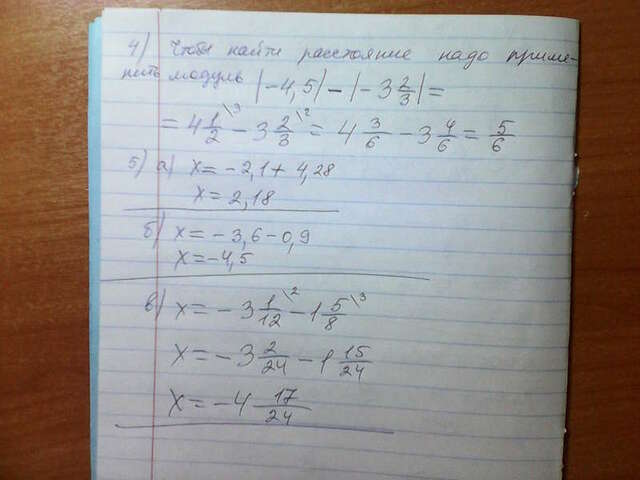 4) Чтобы найти расстояние надо приме-
нить модуль |-4,5| - |-3 2/3| =
= 4 1/2 \3 - 3 2/3 \2 = 4 3/6 - 3 4/6 = 5/6
5) а) x = -2,1 + 4,28
x = 2,18
б) x = -3,6 - 0,9
x = -4,5
в) x = -3 1/12 \2 - 1 5/8 \3
x = -3 2/24 - 1 15/24
x = -4 17/24